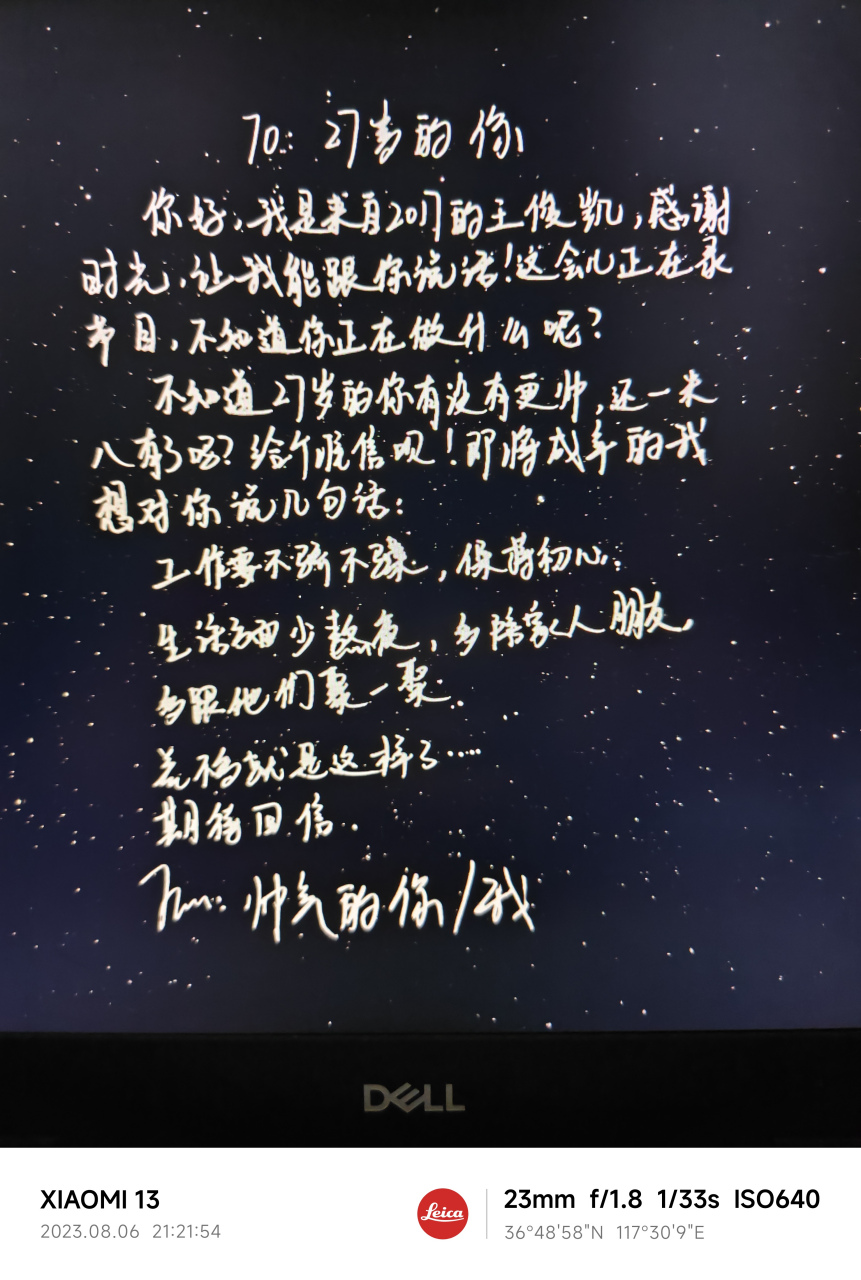 To: 27岁的你
你好,我是来自2017的王俊凯,感谢
时光,让我能跟你说话!这会儿正在录
节目,不知道你正在做什么呢?
不知道27岁的你有没有更帅,还一米
八有了吗?给个准信呗!即将成年的我
想对你说几句话:
工作要不骄不躁,保持初心.
生活方面少熬夜,多陪家人朋友,
多跟他们聚一聚.
差不多就是这样了……
期待回信.
From: 帅气的你/我
DELL
XIAOMI 13
2023.08.06 21:21:54
Leica
23mm f/1.8 1/33s ISO640
36°48'58"N 117°30'9"E